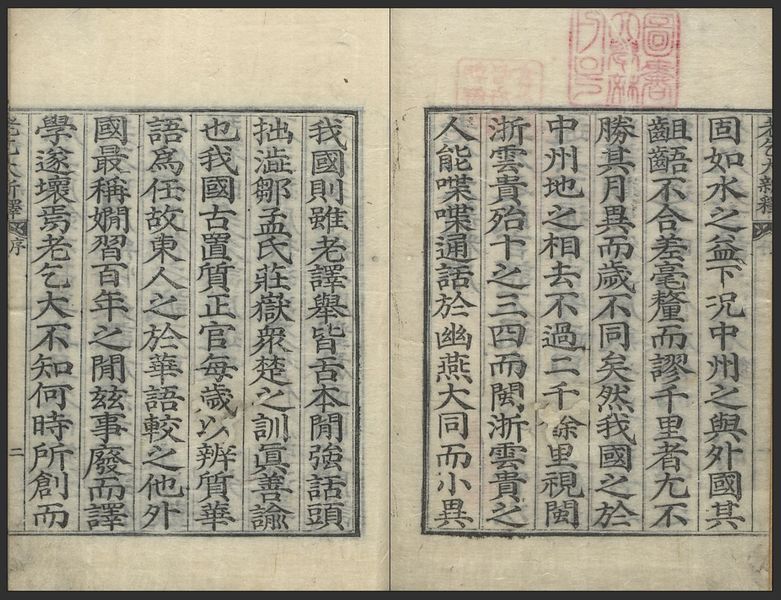 固如水之益下况中州之與外國其
齟齬不合差毫釐而謬千里者尤不
勝其月異而歲不同矣然我國之於
中州地之相去不過二千餘里視閩
浙雲貴殆十之三四而閩浙雲貴之
人能喋喋通話於幽燕大同而小異
我國則雖老譯舉皆舌本閒強話頭
拙澁鄒孟氏莊嶽衆楚之訓眞善諭
也我國古置質正官每歲以辨質華
語爲任故東人之於華語較之他外
國最稱嫺習百年之閒兹事廢而譯
學遂壞焉老乞大不知何時所創而
老乞大新釋 序 二
圖書